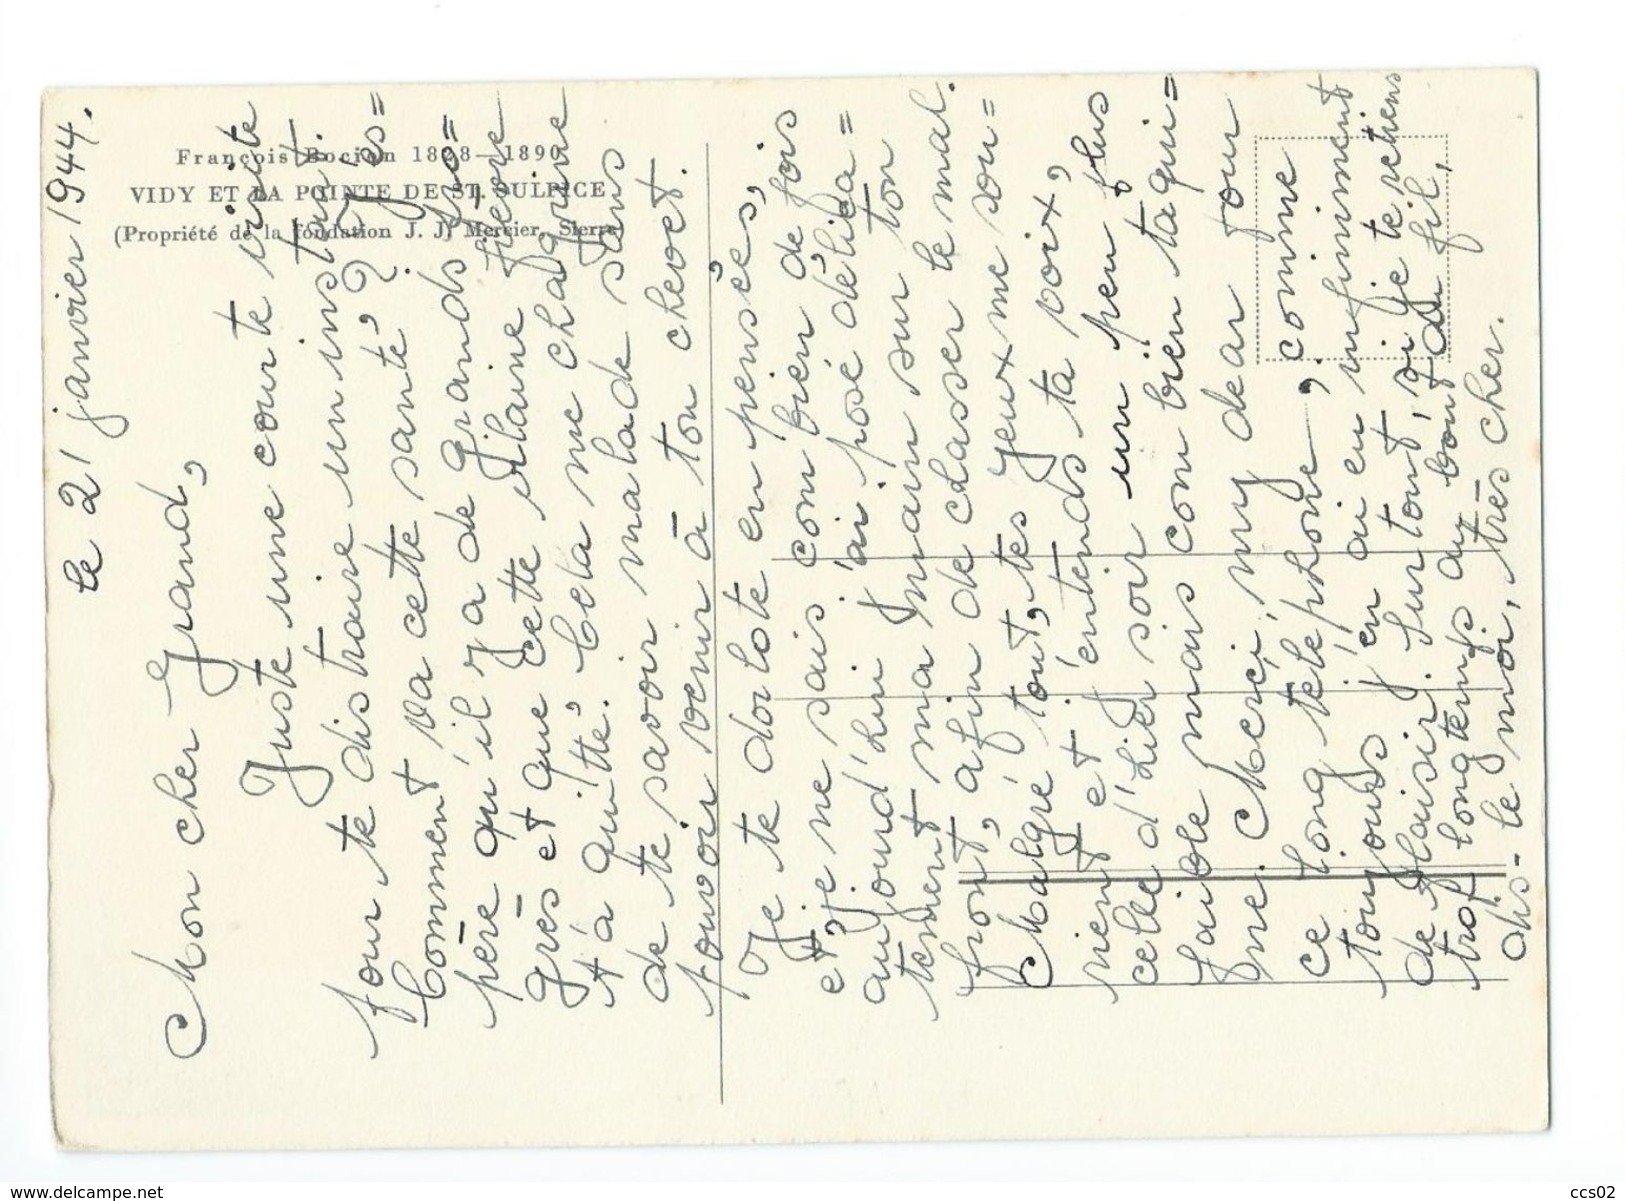 François Bocion 1828—1890
VIDY ET LA POINTE DE ST. SULPICE
(Propriété de la fondation J. J. Mercier, Sierre)
le 21 janvier 1944.
Mon cher Grand,
Juste une courte visite
pour te distraire un instant.
Comment va cette santé? J'es=
père qu'il y a de grands pro=
grès et que cette vilaine fièvre
t'a quitté. Cela me chagrine
de te savoir malade sans
pouvoir venir à ton chevet.
Je te dorlote en pensées,
et je ne sais combien de fois
aujourd'hui j'ai posé délica=
tement ma main sur ton
front, afin de chasser le mal.
Malgré tout, tes yeux me sou=
rient et j'entends ta voix,
celle d'hier soir un peu plus
faible mais combien taqui=
ne. Merci, my dear pour
ce long téléphone, comme
toujours j'en ai eu infiniment
de plaisir. Surtout, si je te retiens
trop longtemps au bout du fil,
dis-le moi, très cher.
delcampe.net
ccs02